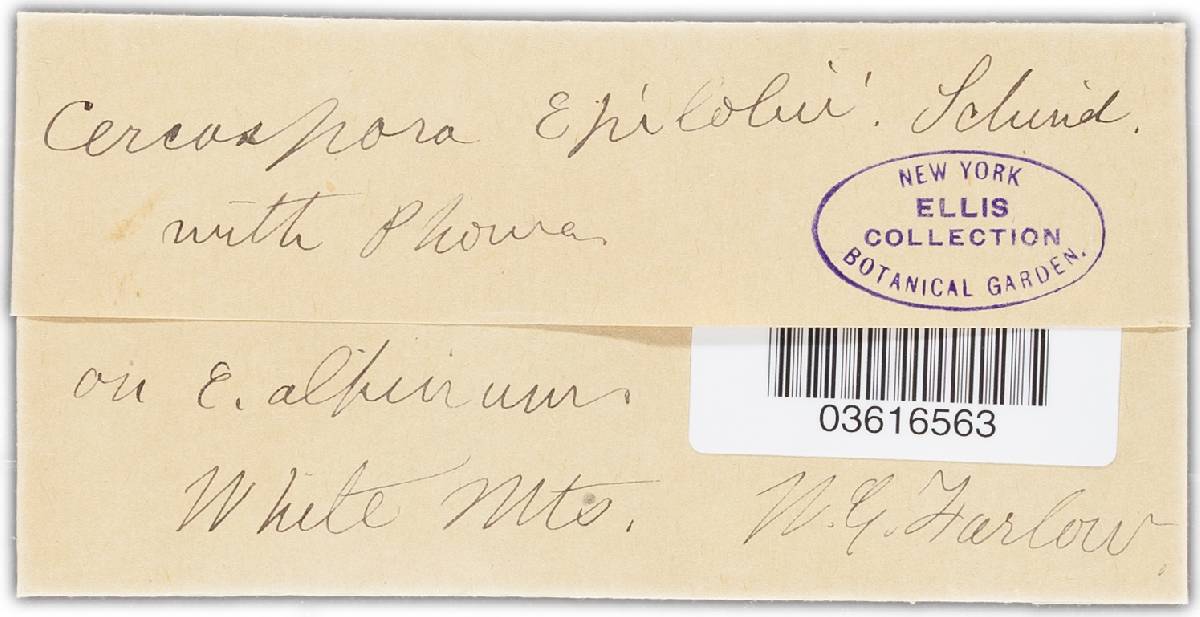 Cercospora Epilobii. Schnid.
with Phoma
NEW YORK
ELLIS
COLLECTION
BOTANICAL GARDEN.
on E. alpinum.
03616563
White Mts. W. G. Farlow